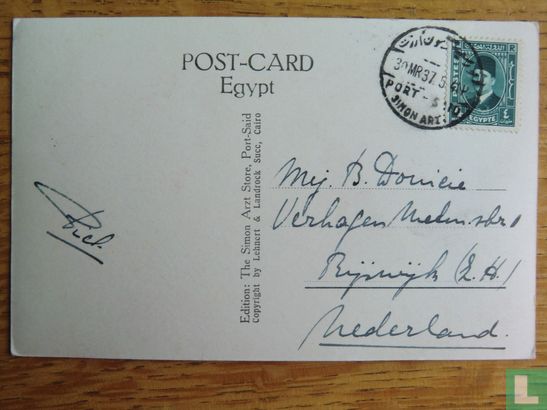 POST-CARD
Egypt
Edition: The Simon Arzt Store, Port-Said
Copyright by Lehnert & Landrock Succ, Cairo
30 MR 37
PORT-S
SIMON ARZT
POSTES
EGYPTE
٤
Mej. B.
Verhagen
Rijswijk (Z.H.)
Nederland.